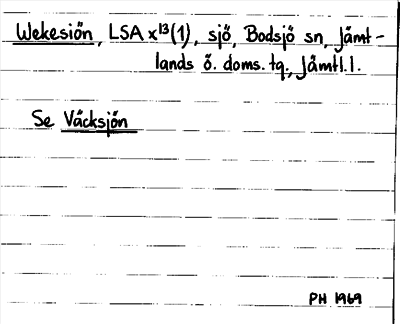 Wekesiön, LSA x¹³(1), sjö, Bodsjö sn, Jämt-
lands ö. doms. tg., Jämtl.l.
Se Väcksjön
PH 1969